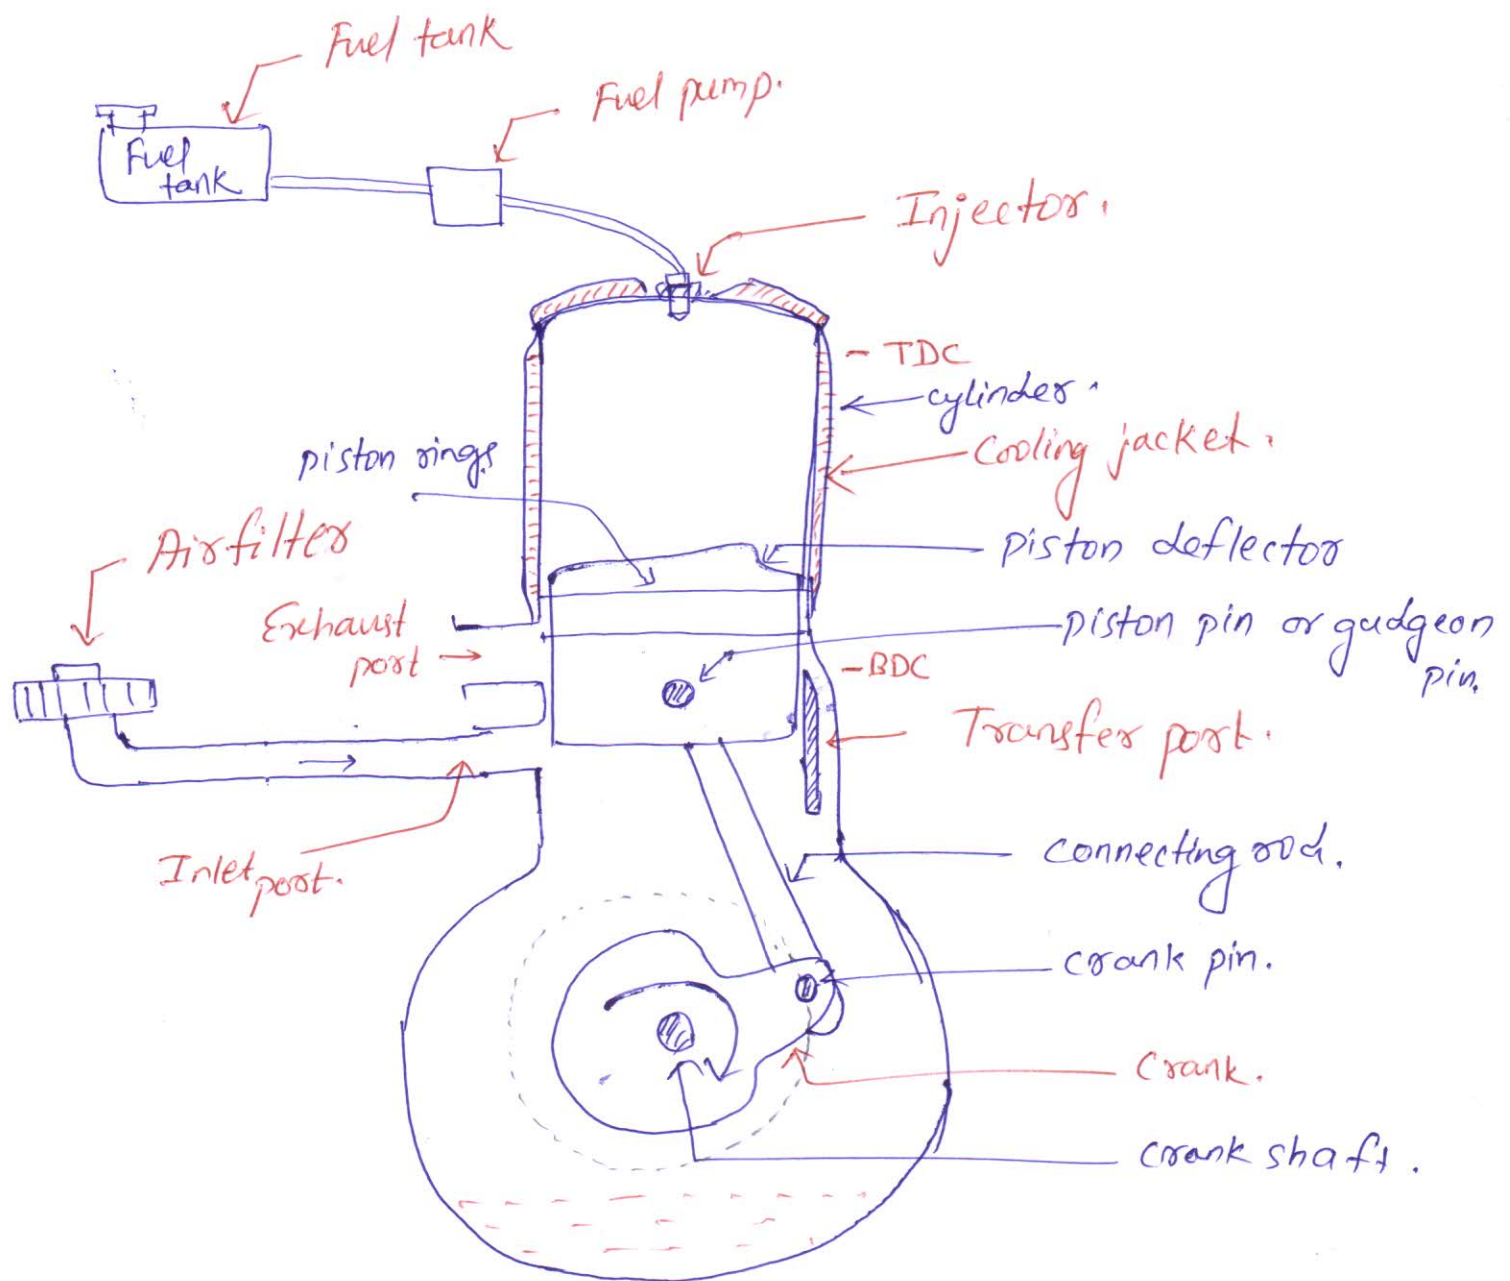 Fuel tank
Fuel pump.
Fuel
tank
Injector.
- TDC
cylinder.
cooling jacket.
piston rings
Airfilter
piston deflector
Exhaust
port
piston pin or gudgeon
pin.
- BDC
Transfer port.
Inlet port.
connecting rod.
crank pin.
Crank.
crank shaft.